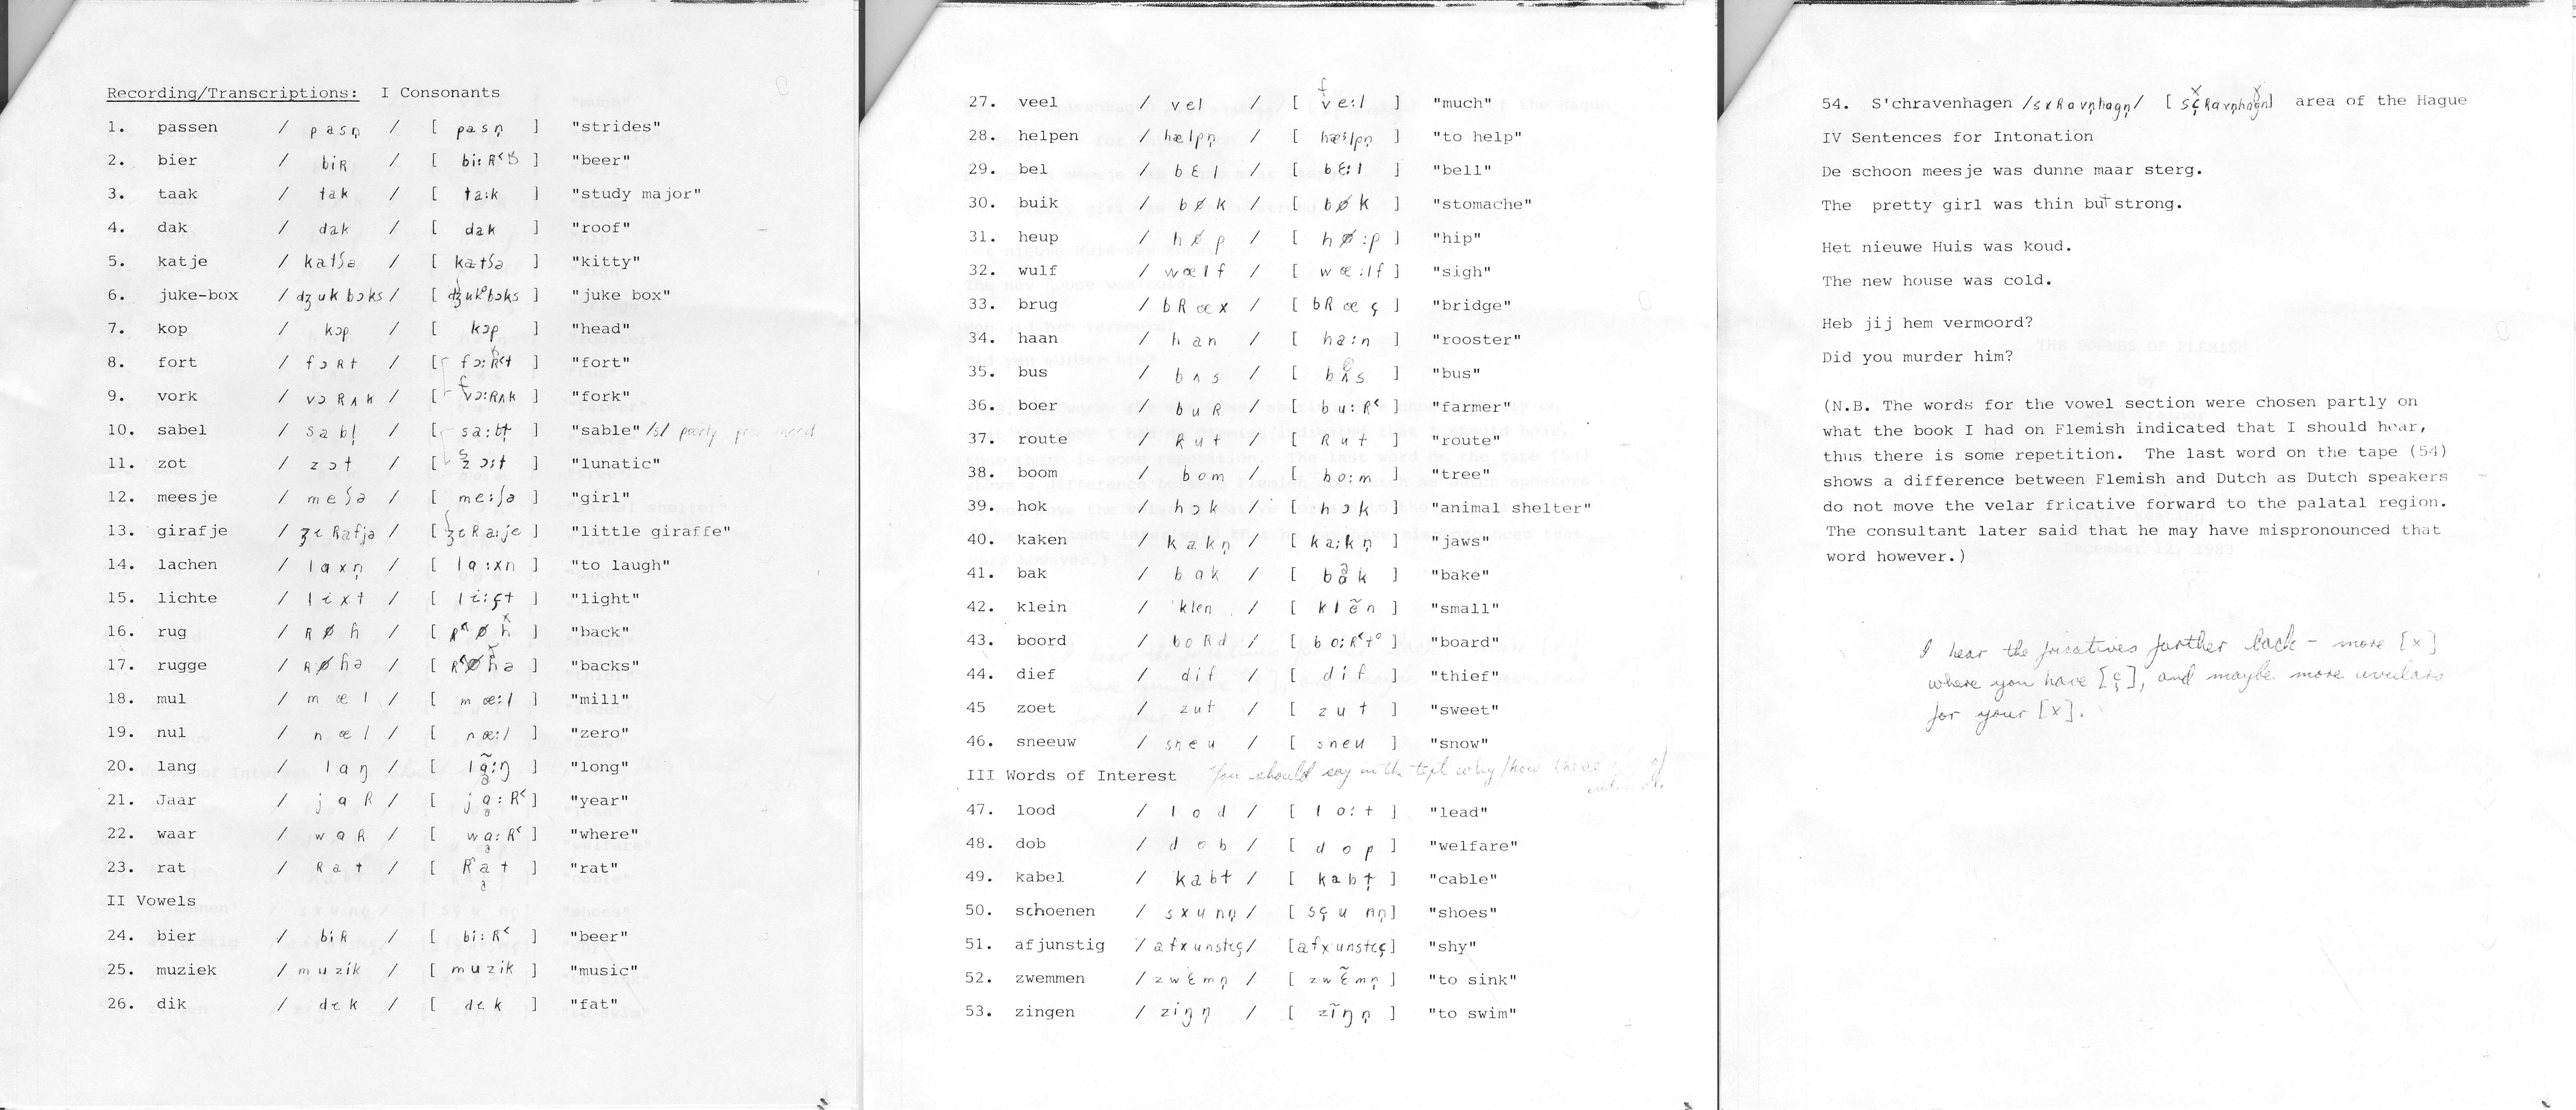 Recording/Transcriptions: I Consonants
1. passen / pasn̩ / [ pasn̩ ] "strides"
2. bier / biR / [ bi:R˂ ] "beer"
3. taak / tak / [ ta:k ] "study major"
4. dak / dak / [ dak ] "roof"
5. katje / katʃə / [ katʃə ] "kitty"
6. juke-box / dʒukbɔks / [ dʒukbɔks ] "juke box"
7. kop / kɔp / [ kɔp ] "head"
8. fort / fɔRt / [ fɔ:R˂t ] "fort"
9. vork / vɔRʌk / [ vɔ:Rʌk ] "fork"
10. sabel / sabl̩ / [ sa:bɫ̩ ] "sable" /s/ poorly
11. zot / zɔt / [ zɔ:t ] "lunatic"
12. meesje / meʃə / [ me:ʃə ] "girl"
13. girafje / ʒɩRafjə / [ ʒɩRa:je ] "little giraffe"
14. lachen / lɑxn̩ / [ lɑ:xn ] "to laugh"
15. lichte / lixt / [ li:çt ] "light"
16. rug / Røɦ / [ R˂øɦ ] "back"
17. rugge / Røɦə / [ R˂øɦə ] "backs"
18. mul / mœl / [ mœ:l ] "mill"
19. nul / nœl / [ nœ:l ] "zero"
20. lang / lɑŋ / [ lɑ̃:ŋ ] "long"
21. Jaar / jɑR / [ jɑ:R˂ ] "year"
22. waar / wɑR / [ wɑ:R˂ ] "where"
23. rat / Rat / [ R˂at ] "rat"
II Vowels
24. bier / biR / [ bi:R˂ ] "beer"
25. muziek / muzik / [ muzik ] "music"
26. dik / dɩk / [ dɩk ] "fat"
27. veel / vel / [ ve:l ] "much"
28. helpen / hælpn̩ / [ hæ:lpn̩ ] "to help"
29. bel / bɛl / [ bɛ:l ] "bell"
30. buik / bøk / [ bøk ] "stomache"
31. heup / høp / [ hø:p ] "hip"
32. wulf / wœlf / [ wœ:lf ] "sigh"
33. brug / bRœx / [ bRœç ] "bridge"
34. haan / han / [ ha:n ] "rooster"
35. bus / bʌs / [ bʌs ] "bus"
36. boer / buR / [ bu:R˂ ] "farmer"
37. route / Rut / [ Rut ] "route"
38. boom / bom / [ bo:m ] "tree"
39. hok / hɔk / [ hɔk ] "animal shelter"
40. kaken / kakn̩ / [ ka:kn̩ ] "jaws"
41. bak / bak / [ bak ] "bake"
42. klein / klen / [ klẽn ] "small"
43. boord / boRd / [ bo:R˂t° ] "board"
44. dief / dif / [ dif ] "thief"
45 zoet / zut / [ zut ] "sweet"
46. sneeuw / sneu / [ sneu ] "snow"
III Words of Interest You should say in the text why/how these of
47. lood / lod / [ lo:t ] "lead"
48. dob / dob / [ dop ] "welfare"
49. kabel / kabɫ / [ kabɫ̩ ] "cable"
50. schoenen / sxunn̩ / [ sçunn̩ ] "shoes"
51. afjunstig / afxunstɩç / [afxunstɩç] "shy"
52. zwemmen / zwɛmn̩ / [ zwɛ̃mn̩ ] "to sink"
53. zingen / ziŋn̩ / [ zĩŋn̩ ] "to swim"
54. S'chravenhagen /sxRavn̩hagn̩/ [ sçRavn̩hagn̩] area of the Hague
IV Sentences for Intonation
De schoon meesje was dunne maar sterg.
The pretty girl was thin but strong.
Het nieuwe Huis was koud.
The new house was cold.
Heb jij hem vermoord?
Did you murder him?
(N.B. The words for the vowel section were chosen partly on
what the book I had on Flemish indicated that I should hear,
thus there is some repetition. The last word on the tape (54)
shows a difference between Flemish and Dutch as Dutch speakers
do not move the velar fricative forward to the palatal region.
The consultant later said that he may have mispronounced that
word however.)
I hear the fricatives farther back - more [x]
where you have [ç], and maybe more uvulars
for your [x].